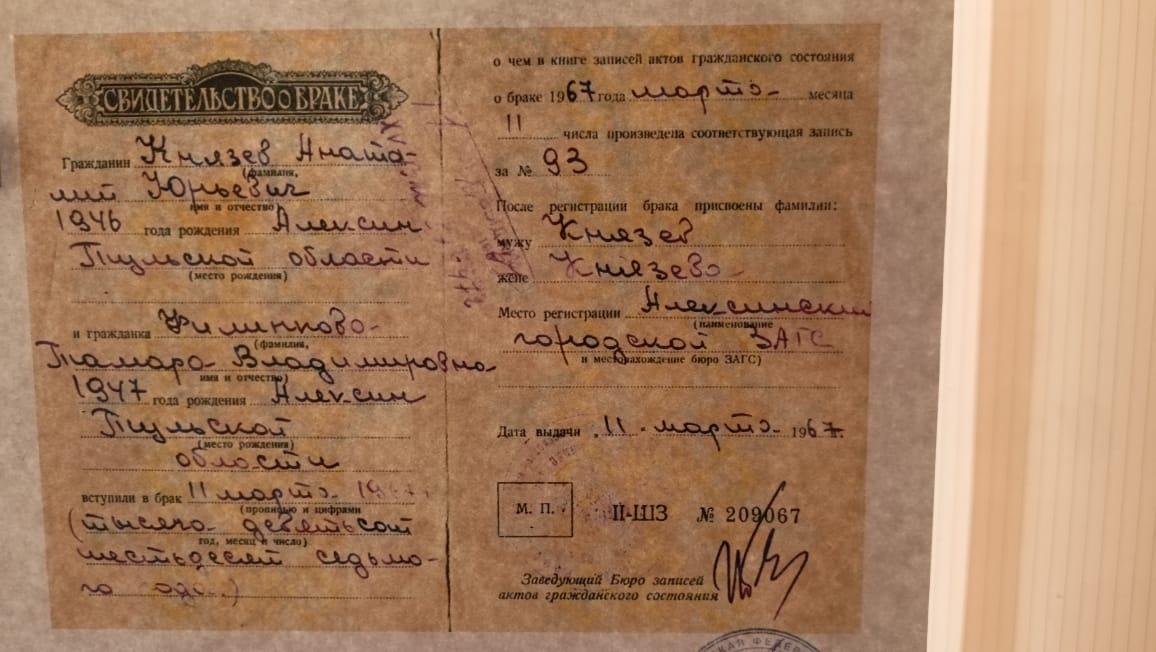 СВИДЕТЕЛЬСТВО о БРАКЕ
Гражданин Князев Анато-
(фамилия,
лий Юрьевич
имя и отчество)
1946 года рождения Алексин
Тульской области
(место рождения)
и гражданка Филинкова
(фамилия,
Тамара Владимировна
имя и отчество)
1947 года рождения Алексин
Тульской
(место рождения)
области
вступили в брак 11 марта 1967
(прописью и цифрами
(тысяча девятьсот
год, месяц и число)
шестьдесят седьмо-
го
о чем в книге записей актов гражданского состояния
о браке 1967 года марта месяца
11 числа произведена соответствующая запись
за № 93
После регистрации брака присвоены фамилии:
мужу Князев
жене Князева
Место регистрации Алексинский
(наименование
городской ЗАГС
и местонахождение бюро ЗАГС)
Дата выдачи 11 марта 1967 г.
М. П.
II-ШЗ № 209067
Заведующий Бюро записей
актов гражданского состояния